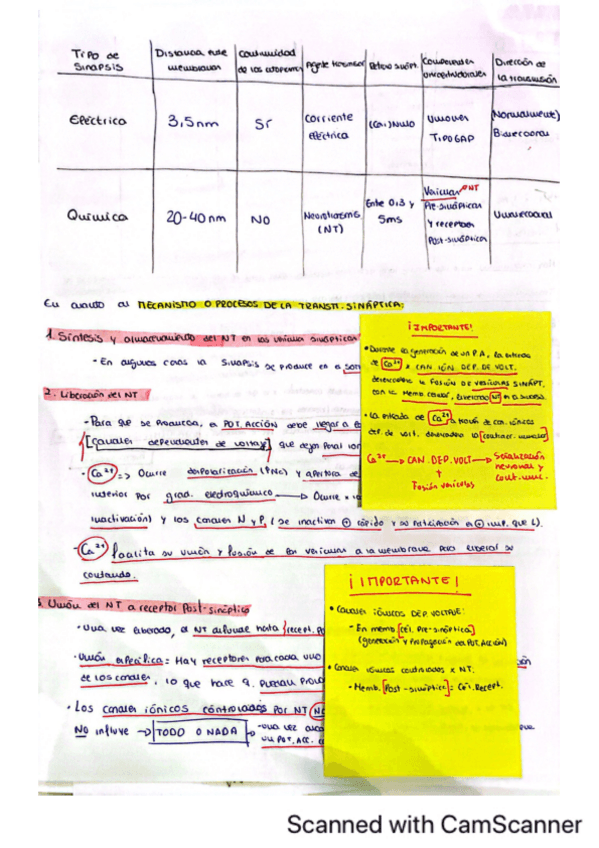 Tipo de Sinapsis
Distancia entre membranas
Continuidad de los citoplasmas
Agente transmisor
Retraso sinápt.
Componentes
Dirección de la transmisión
Eléctrica
3,5 nm
Sí
Corriente eléctrica
(Casi) Nulo
Uniones TIPO GAP
(Normalmente) Bidireccional
Química
20-40 nm
NO
Neurotransms. (NT)
Ente 0,3 y 5ms
Vesículas NT Pre-sinápticas y receptores Post-sinápticos
Unidireccional
En cuanto al MECANISMO O PROCESOS DE LA TRANSM. SINÁPTICA:
1. Síntesis y almacenamiento del NT en las vesículas sinápticas
- En algunos casos la sinapsis se produce en el
2. Liberación del NT
- Para que se produzca, el POT. ACCIÓN debe llegar a
[canales dependientes de voltaje] que dejan pasar
- Ca²⁺ => Ocurre despolarización y apertura de
interior por grad. electroquímico → Ocurre
inactivación) y los canales N y P, (se inactivan ⊕ rápido y su participación es ⊕ imp. que L).
- Ca²⁺ Facilita su unión y fusión de las vesículas a la membrana para liberar su
contenido.
3. Unión del NT a receptor Post-sináptico
- Una vez liberado, el NT difunde hasta
- Unión específica = Hay receptores para cada uno
de los canales, lo que hace q. puedan
- Los canales iónicos controlados por NT NO
NO influye → TODO O NADA
- una vez
un POT. ACC.
¡IMPORTANTE!
• Durante la generación de un P.A, la entrada
de Ca²⁺ x CAN. IÓN. DEP. DE VOLT.
desencadena la FUSIÓN DE VESÍCULAS SINÁPT.
con la memb celular, liberando NT
• La entrada de Ca²⁺ a través de can. iónicos
dep. de volt. desencadena la
Ca²⁺ → CAN. DEP. VOLT → Señalización neuronal y
+
Fusión vesículas
¡IMPORTANTE!
• CANALES IÓNICOS DEP. VOLTAJE:
- En memb [cél. Pre-sináptica]
(generación y propagación del POT. ACCIÓN)
• Canales iónicos controlados x NT.
- Memb. [Post-sináptica] = Cél. Recept.
Scanned with CamScanner